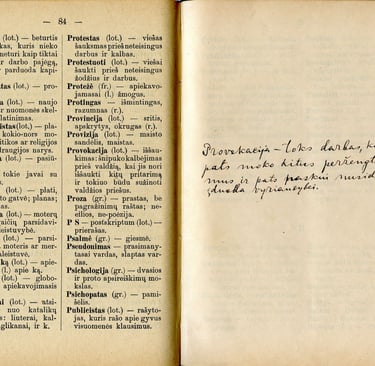 — 84 —
(lot.) — beturtis
kas, kuris nieko
neturi kaip tiktai
ir darbo pajėgą,
parduoda kapi-
tas (lot.) — pro-
(lot.) — naujo
ir nuomonės skel-
latinimas.
istas (lot.) — pla-
kokio-nors mo-
itikos ar religijos
draugijos narys.
(lot.) — pasiū-
tokie javai su
(lot.) — plati,
gatvė; planas;
(lot.) — moterų
parsidavi-
leistuvybė.
(lot.) — parsi-
moteris ar mer-
aleistuvė.
(lot.) — apie ką.
(l.) apie ką.
(lot.) — globo-
apiekavojimasis
(lot.) — utsi-
nuo katalikų
s: linterai, kal-
nglikanai, ir k.
Protestas (lot.) — viešas
šauksmas prieš neteisingus
darbus ir kalbas.
Protestuoti (lot.) — viešai
šaukti prieš neteisingus
žodžius ir darbus.
Protežė (fr.) — apiekavo-
jamasai (l.) žmogus.
Protingas — išmintingas,
razumnas (r.).
Provincija (lot.) — sritis,
apskrytis, okrugas (r.).
Provizija (lot.) — maisto.
Provokacija (lot.) — iššau-
kimas: šnipuko kalbėjimas
prieš valdžią, kad jis nori
iššaukti kitų pritarimą
ir tokiuo būdu sužinoti
valdžios priešus.
Proza (gr.) — prastas, be
pagražinimų raštas; ne-
eilios, ne-poėzija.
P S — postskriptum (lot.) —
prierašas.
Psalmė (gr.) — giesmė.
Pseudonimas — prasimany-
tasai vardas, slaptas var-
das.
Psichologija (gr.) — dvasios
ir proto apsireiškimų mo-
kslas.
Psichopatas (gr.) — pami-
šėlis.
Publicistas (lot.) — rašyto-
jas, kuris rašo apie gyvus
visuomenės klausimus.
Provokacija – toks darbas, k
pats moko kitus peržengt
mus ir pats paskui nusid
išduoda vyriausybei.